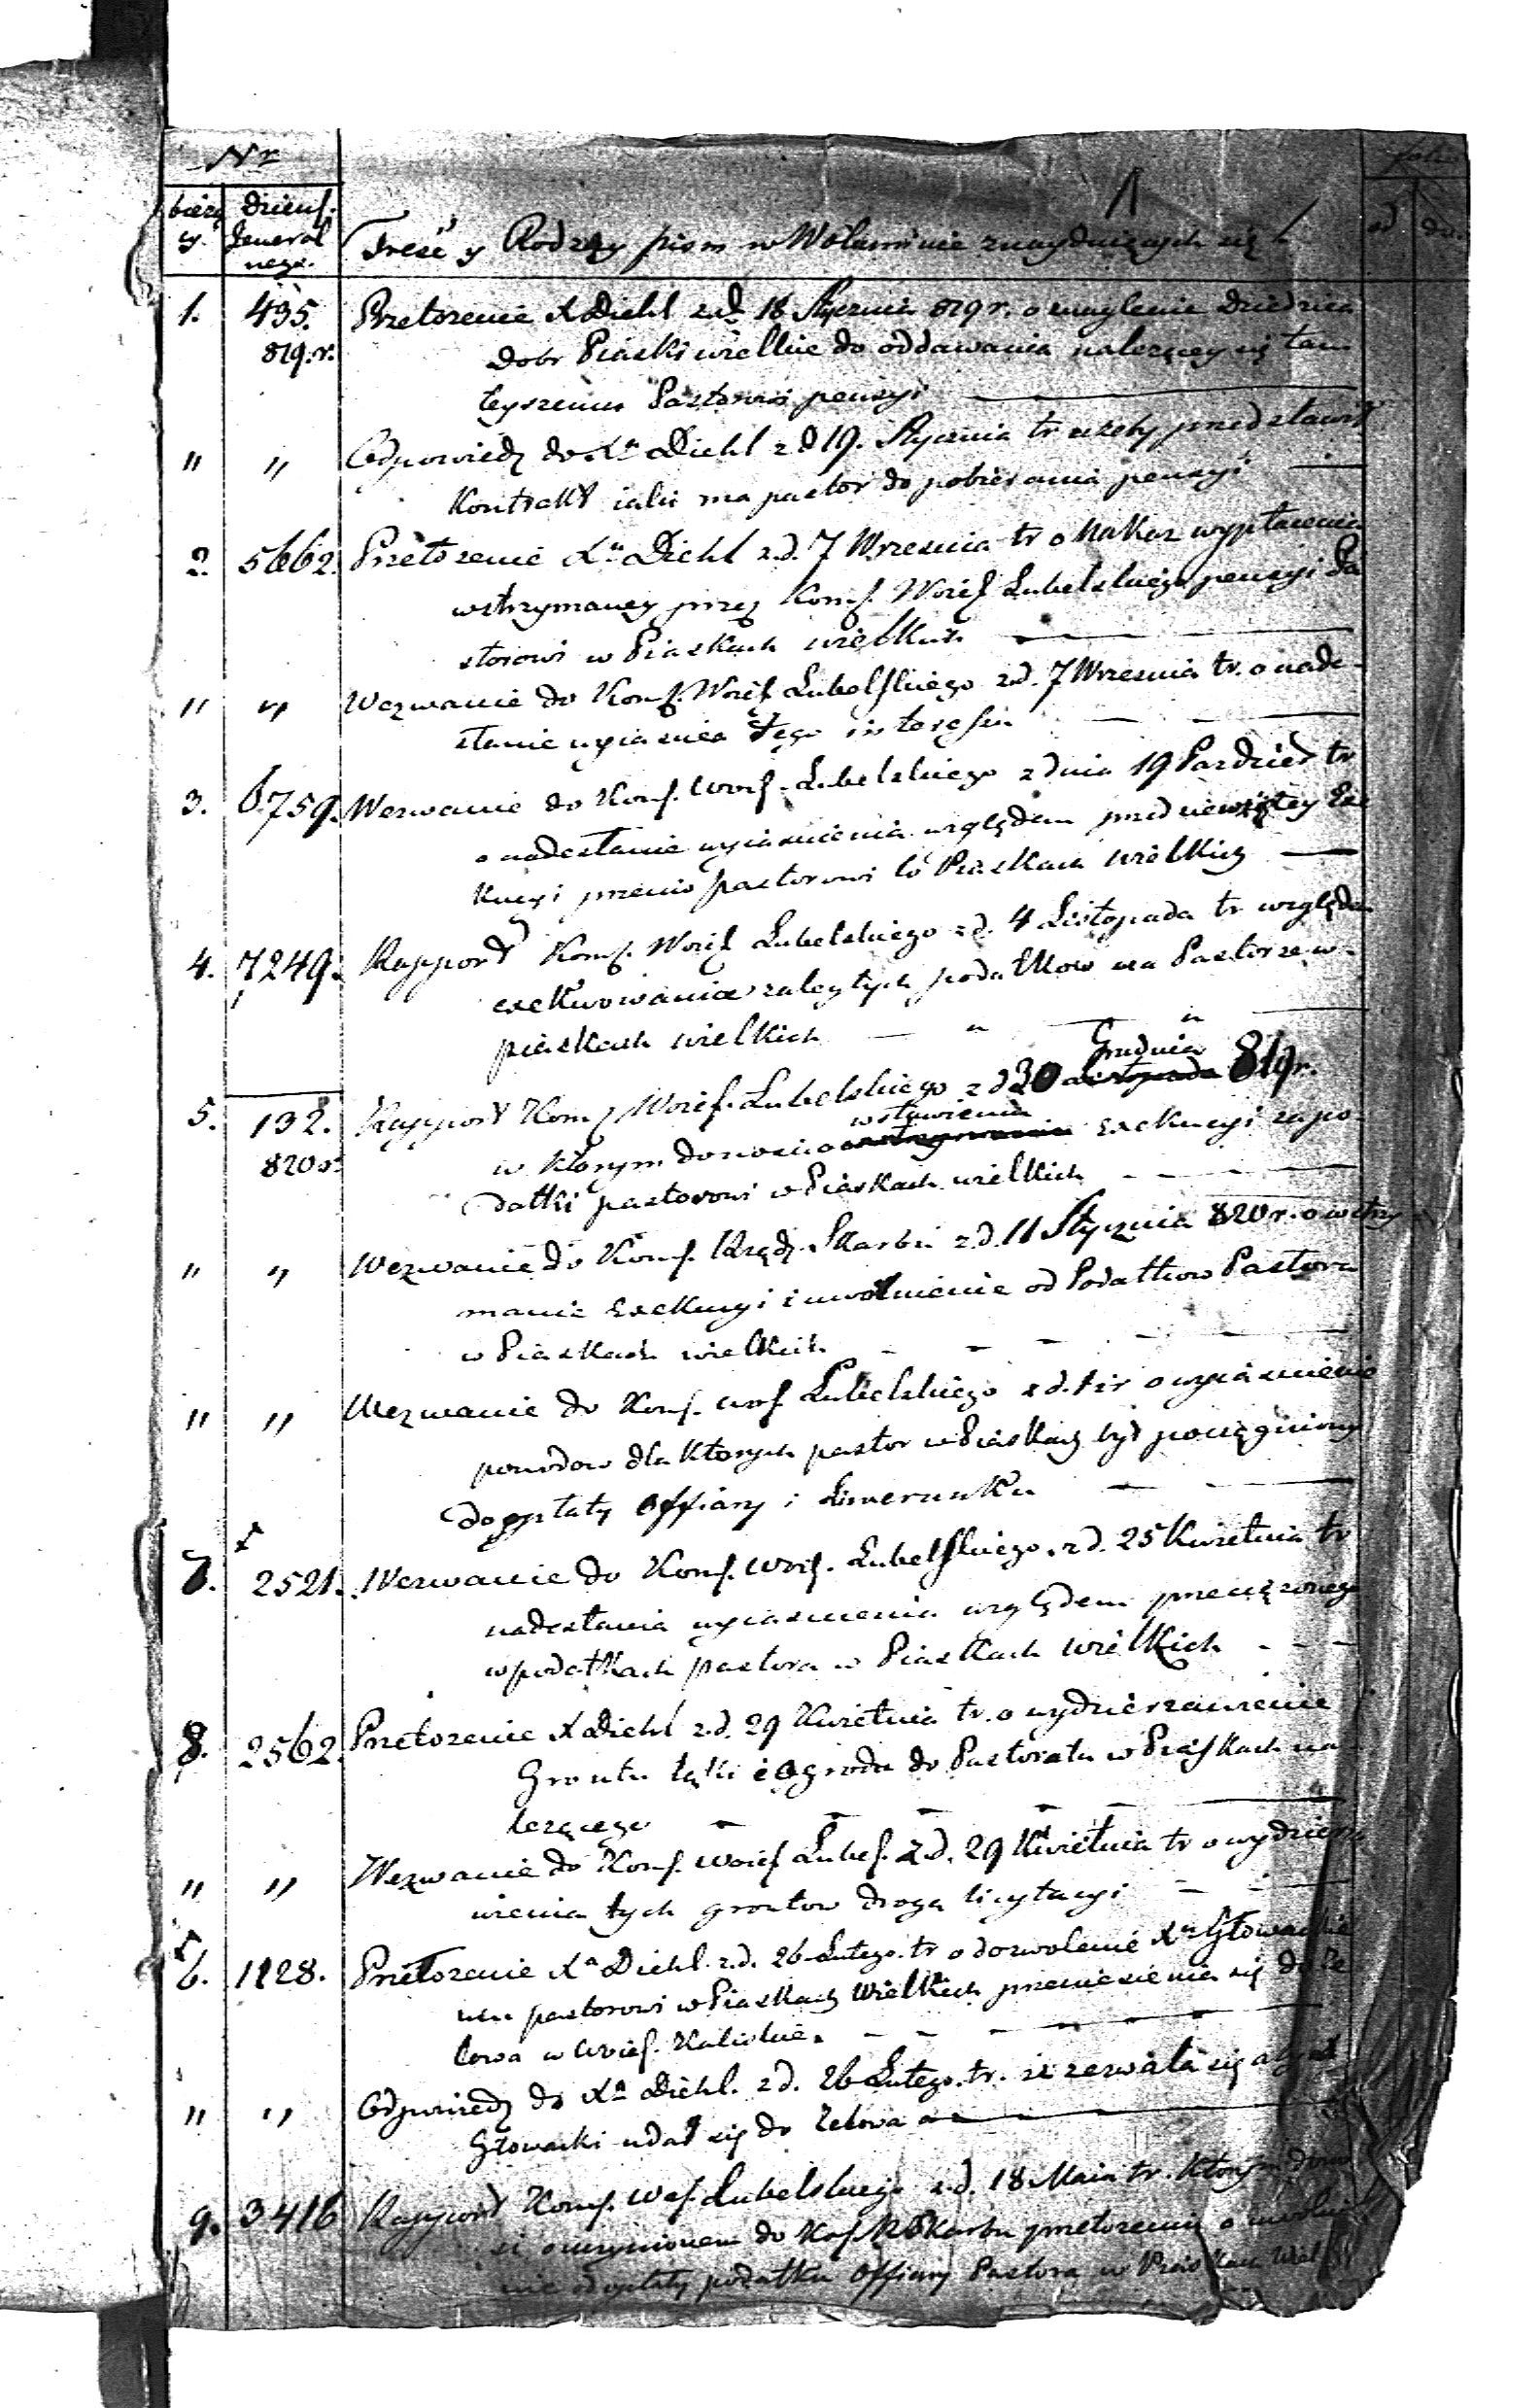 Nr
folio
bieżą
cy.
Dzien.
General
nego.
Treść y Rodzay pism w Woluminie znayduiących się
od do
1. 435. Przełożenie X Diehl z d. 18 Stycznia 819 r. o naglenie Dziedzica
819. r. Dobr Piaski wielkie do oddawania należącey się tam
teyszemu Pastorowi pensyi
" " Odpowiedź do Xa Diehl z d 19. Stycznia tr ażeby przedstawił
Kontrakt iaki ma pastor do pobierania pensyi
2. 5662. Przełożenie Xa Diehl z d. 7 Wrzesnia tr o nakaz wypłacenia
wstrzymaney przez Komß. Woiew Lubelskiego pensyi Pa
storowi w Piaskach wielkich
" " Wezwanie do Komß. Woiew Lubelskiego z d. 7 Wrzesnia tr. o nade-
słanie wyiasnien tego interessu
3. 6759. Wezwanie do Komß. Woß. Lubelskiego z dnia 19 Pazdzier tr
o nadesłanie wyiasnienia względem przedniewziętey Exe
kucyi przeciw pastorowi w Piaskach wielkich
4. 7249. Rapport Komß. Woiew Lubelskiego z d. 4 Listopada tr względem
exekwowania zaległych podatkow na Pastorze w-
piaskach wielkich " "
5. 132. Rapport Komß Woiew. Lubelskiego z d 30 Listopada Grudnia 819 r.
820 r. w ktorym donosi o wstawienia exekucyi za po-
datki pastorowi w Piaskach wielkich
" " Wezwanie do Komß. Rząd. Skarbu z d. 11 Stycznia 820 r. o wstrzy
manie exekucyi i uwolnienie od Podatkow Pastora
w Piaskach wielkich
" " Wezwanie do Komß. woß Lubelskiego z d. o wyiasnienie
powodow dla ktorych pastor w Piaskach był pociągniony
do opłaty Offiary i Liwerunku
7. 2521. Wezwanie do Komß. Woß. Lubelskiego z d. 25 Kwietnia tr
nadesłania wyiasnienia względem przeciążonego
w podatkach pastora w Piaskach wielkich
8. 2562. Przełożenie X Diehl z d. 29 Kwietnia tr. o wydzierzawienie
Gruntu łąki i ogrodu do Pastoratu w Piaskach na-
leżącego
" " Wezwanie do Komß. woiew Lubeß. z d. 29 Kwietnia tr o wydzierza
wienia tych gruntow drogą licytacyi
6. 1128. Przełożenie Xa Diehl. z d. 26 Lutego tr o dozwolenie Xu Głowackie
mu pastorowi w Piaskach Wielkich przeniesienia się do Ze
lowa w Woieß. Kaliskie.
" " Odpowiedź do Xa Diehl. z d. 26 Lutego tr. iż zezwala się aby X
Głowacki udał się do Zelowa
9. 3416 Rapport Komß. Woß. Lubelskiego z d. 18 Maia tr. ktorym dono
si o uczynionem do Koß R Skarbu przełożeniu o uwolnie
nie od opłaty podatku Offiary Pastora w Piaskach Wiel